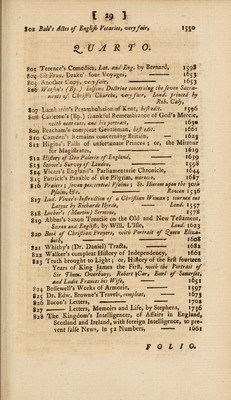 [ 29 ]
802 Bale's Actes of English Votaries, very fair, 1550
QUARTO.
803 Terence's Comedies, Lat. and Eng. by Bernard, 1598
804 Sir Fran. Drake' four Voyages, 1653
805 Another Copy, very fair, 1653
806 Watson's (Bp.) holsome Doctrine concerning the seven Sacra-
ments of Christ's Churche, very fair, Lond. printed by
Rob. Caly,
807 Lambarde's Perambulation of Kent, best edit. 1596
808 Carleton's (Bp.) thankful Remembrance of God's Mercie,
with neat cuts, and his portrait, 1630
809 Peacham's compleat Gentleman, best edit. 1661
810 Camden's Remaines concerning Britain, 1623
811 Higins's Falls of unfortunate Princes; or, the Mirrour
for Magistrates, 1619
812 History of Don Fulerio of England, 1699
813 Stowe's Survey of London, 1598
814 Vicars's England's Parliamenterie Chronicle, 1644
815 Patrick's Parable of the Pilgrim, morocco, 1667
816 Praiers; seven penitential Psalms; St. Hierom upon the 51st
Psalm, &c. Rouen 1536
817 Lud. Vives's Instruction of a Christian Woman; turned out
Latyne by Richard Hyrde, Lond. 1557
818 Luther's (Martin) Sermons, 1578
819 Abbus's Saxon Treatise on the Old and New Testament,
Saxon and English, by Will. L'Isle, Lond. 1623
820 Book of Christian Prayers, with Portrait of Queen Eliza-
beth, 1608
821 Whitby's (Dr. Daniel) Tracts, 1682
822 Walker's compleat History of Independency, 1661
823 Truth brought to Light; or, History of the first fourteen
Years of King James the First, with the Portrait of
Sir Thom. Overbury, Robert Car, Earl of Somerset,
and Ladie Frances his Wife, 1651
824 Bossewell's Works of Armorie, 1597
825 Dr. Edw. Browne's Travels, compleat, 1673
826 Bacon's Letters, 1702
827 —— Letters, Memoirs and Life, by Stephens, 1736
828 The Kingdom's Intelligencer, of Affairs in England,
Scotland and Ireland, with foreign Intelligence, to pre-
vent false News, in 52 Numbers, 1661
FOLIO.